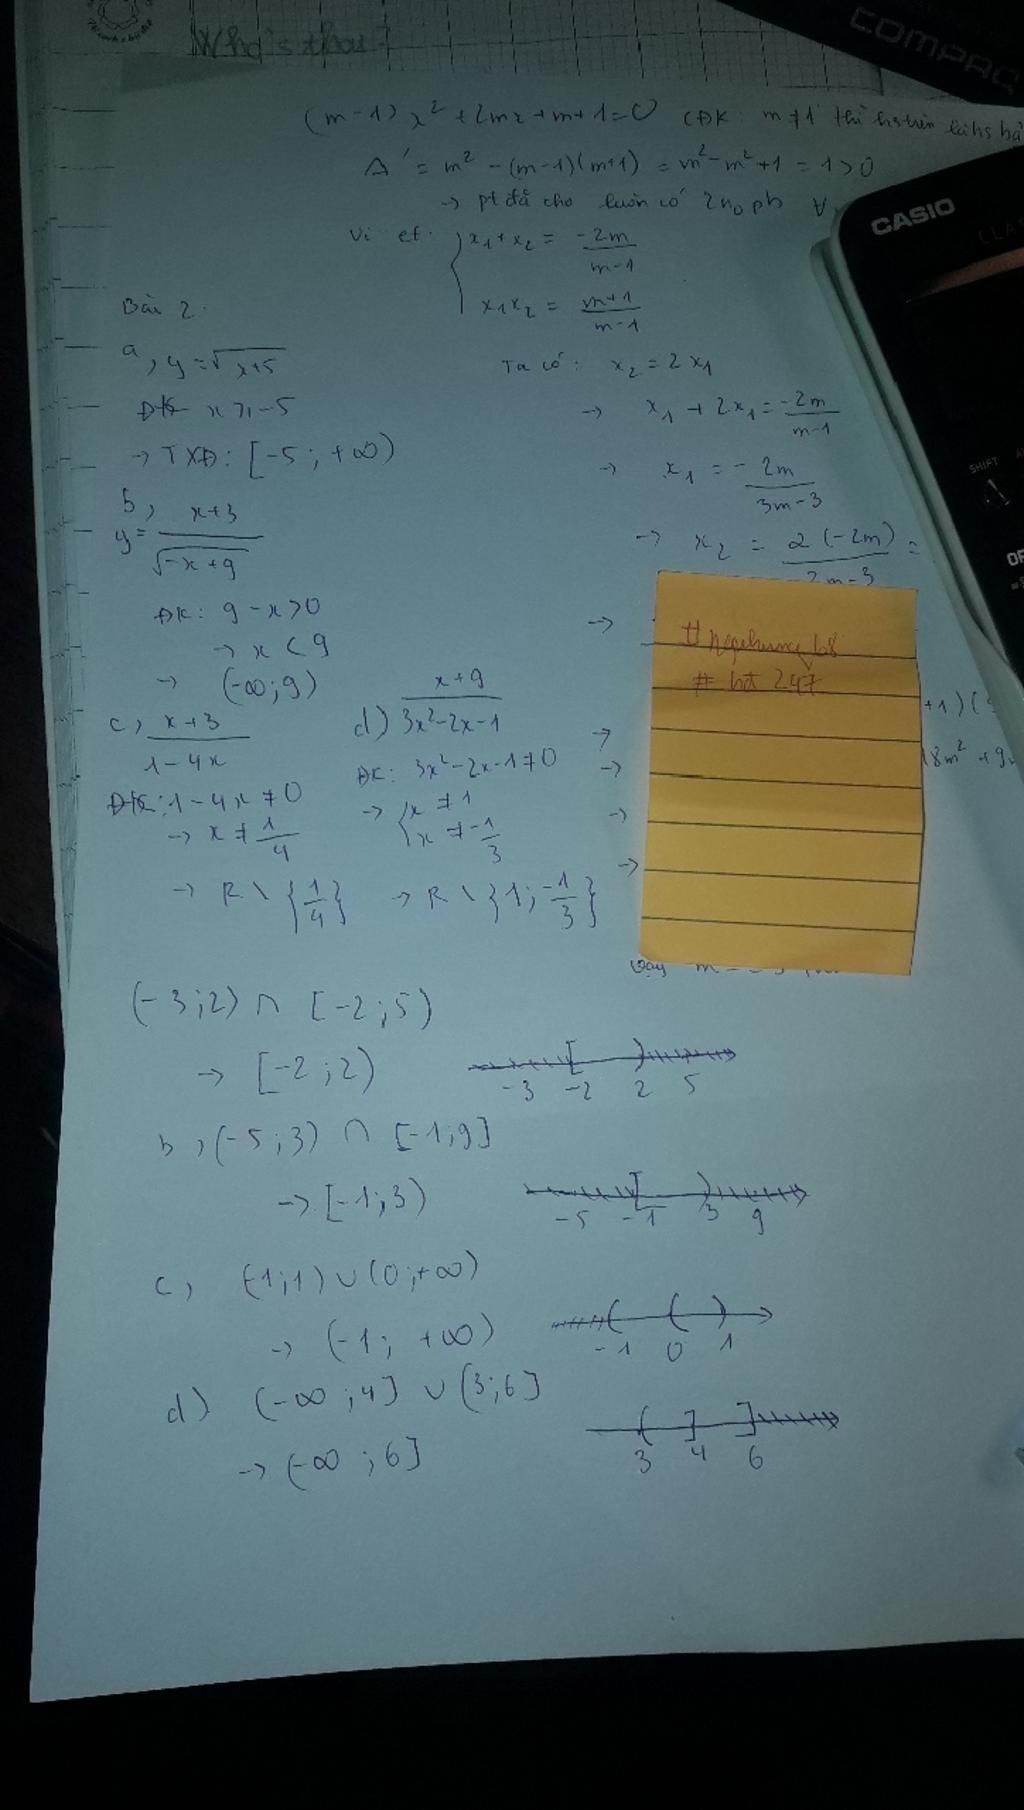 Who's that?
COMPAQ
(m-1)x² + 2mx + m + 1 = 0 (ĐK: m ≠ 1 thì
Δ' = m² - (m-1)(m+1) = m² - m² + 1 = 1 > 0
→ pt đã cho luôn có 2 no pb ∀
CASIO
Vi et: { x₁ + x₂ = -2m/m-1
x₁x₂ = m+1/m-1
Bài 2.
a, y = √x+5
ĐK x ≥ -5
→ TXĐ: [-5; +∞)
b, y = x+3/√-x+9
ĐK: 9 - x > 0
→ x < 9
→ (-∞; 9)
c, x+3/1-4x
ĐK: 1 - 4x ≠ 0
→ x ≠ 1/4
→ R \ {1/4}
d) x+9/3x²-2x-1
ĐK: 3x² - 2x - 1 ≠ 0
→ { x ≠ 1
x ≠ -1/3
→ R \ {1; -1/3}
Ta có: x₂ = 2x₁
→ x₁ + 2x₁ = -2m/m-1
→ x₁ = - 2m/3m-3
→ x₂ = 2(-2m)/3m-3 =
SHIFT
# ht 247
+1)(
18m² + 9
(-3; 2) ∩ [-2; 5)
→ [-2; 2)
-3 -2 2 5
b, (-5; 3) ∩ [-1; 9]
→ [-1; 3)
-5 -1 3 9
c, (-1; 1) ∪ (0; +∞)
→ (-1; +∞)
-1 0 1
d) (-∞; 4] ∪ (3; 6]
→ (-∞; 6]
3 4 6